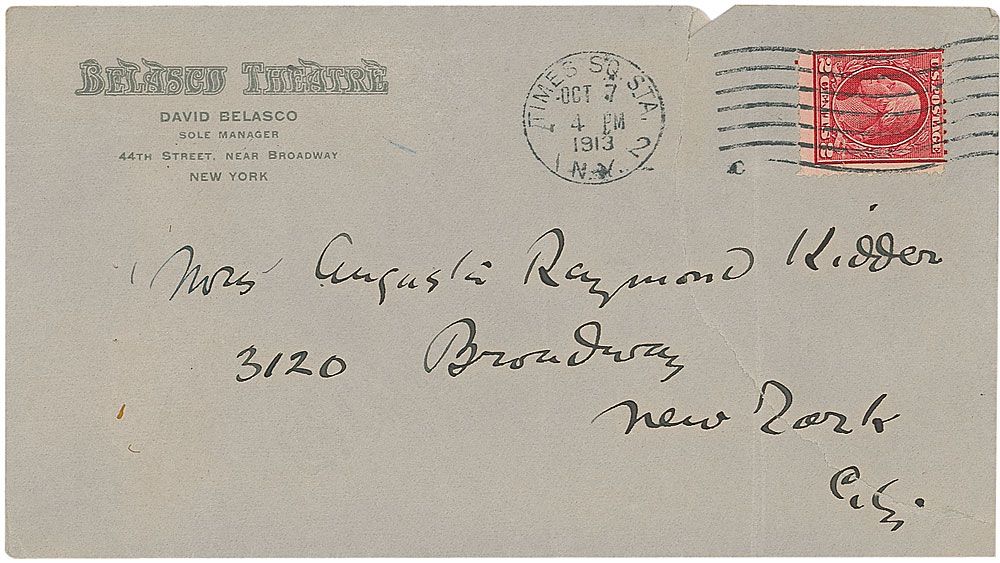 BELASCO THEATRE
DAVID BELASCO
SOLE MANAGER
44TH STREET, NEAR BROADWAY
NEW YORK
TIMES SQ. STA.
OCT 7
4 PM
1913
N.Y.
2
U.S. POSTAGE
2 CENTS 2
Mrs Augusta Raymond Kidder
3120 Broadway
New York
City.